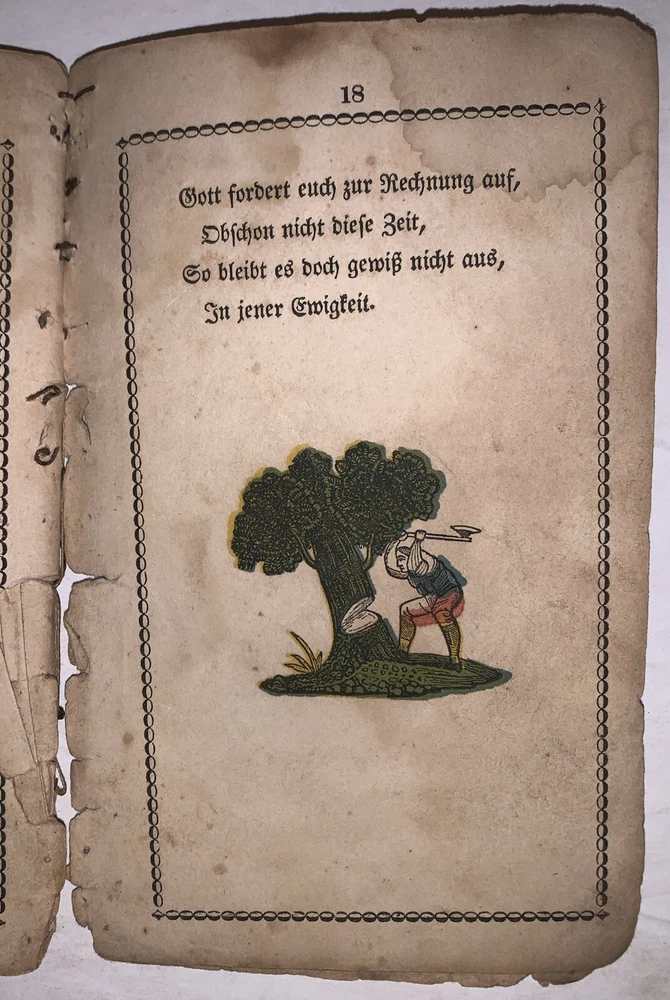 18
Gott fordert euch zur Rechnung auf,
Obschon nicht diese Zeit,
So bleibt es doch gewiß nicht aus,
In jener Ewigkeit.